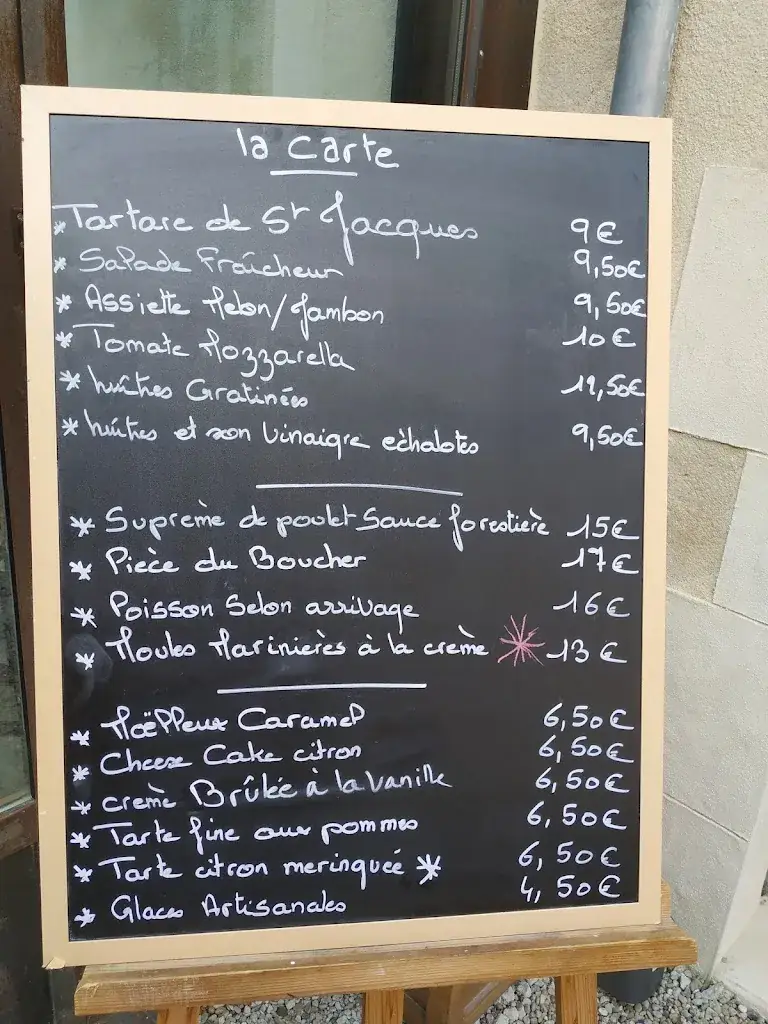 la carte
* Tartare de St Jacques 9€
* Salade Fraîcheur 9,50€
* Assiette Melon/Jambon 9,50€
* Tomate Mozzarella 10€
* huîtres Gratinées 12,50€
* huîtres et son Vinaigre echalotes 9,50€
* Suprème de poulet Sauce forestière 15€
* Pièce du Boucher 17€
* Poisson Selon arrivage 16€
* Moules Marinières à la crème * 13€
* Moëlleux Caramel 6,50€
* Cheese Cake citron 6,50€
* crème Brûlée à la Vanille 6,50€
* Tarte fine aux pommes 6,50€
* Tarte citron meringueé * 6,50€
* Glaces Artisanales 4,50€